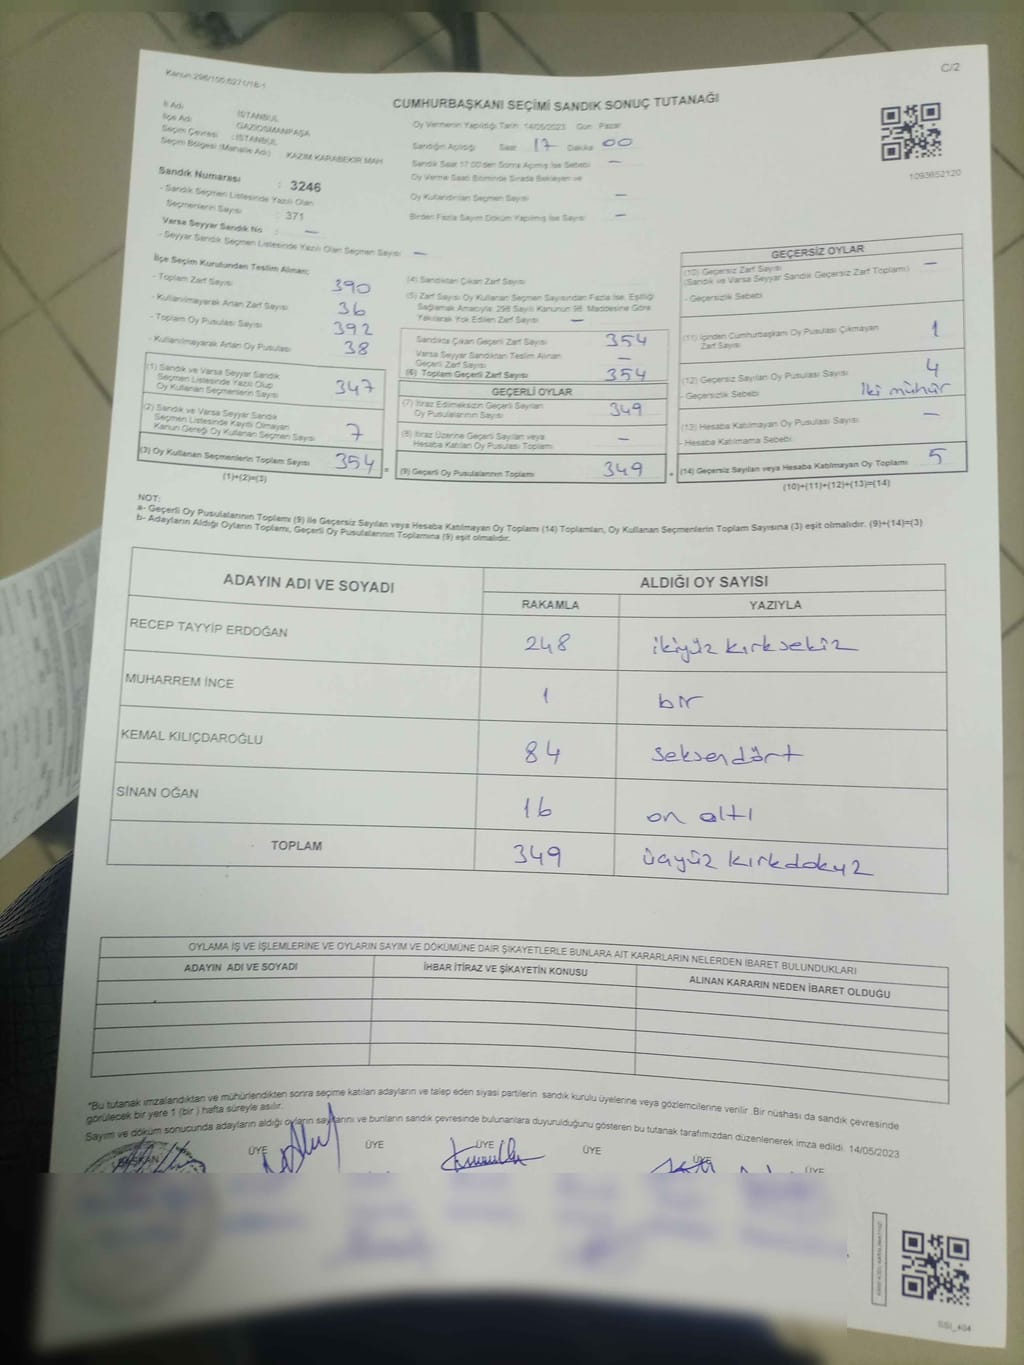 Kanun 298/100,6271/18-1
C/2
CUMHURBAŞKANI SEÇİMİ SANDIK SONUÇ TUTANAĞI
İl Adı : İSTANBUL
İlçe Adı : GAZİOSMANPAŞA
Seçim Çevresi : İSTANBUL
Seçim Bölgesi (Mahalle Adı) : KAZIM KARABEKİR MAH
Oy Vermenin Yapıldığı Tarih: 14/05/2023 Gün: Pazar
Sandığın Açıldığı Saat 17 Dakika 00
Sandık Saat 17:00'den Sonra Açılmış İse Sebebi —
Oy Verme Saati Bitiminde Sırada Bekleyen ve
Oy Kullandırılan Seçmen Sayısı —
Birden Fazla Sayım Döküm Yapılmış İse Sayısı —
1093652120
Sandık Numarası : 3246
- Sandık Seçmen Listesinde Yazılı Olan
Seçmenlerin Sayısı : 371
Varsa Seyyar Sandık No : —
- Seyyar Sandık Seçmen Listesinde Yazılı Olan Seçmen Sayısı : —
İlçe Seçim Kurulundan Teslim Alınan;
- Toplam Zarf Sayısı 390
- Kullanılmayarak Artan Zarf Sayısı 36
- Toplam Oy Pusulası Sayısı 392
- Kullanılmayarak Artan Oy Pusulası 38
(1) Sandık ve Varsa Seyyar Sandık
Seçmen Listesinde Yazılı Olup
Oy Kullanan Seçmenlerin Sayısı 347
(2) Sandık ve Varsa Seyyar Sandık
Seçmen Listesinde Kayıtlı Olmayan
Kanun Gereği Oy Kullanan Seçmen Sayısı 7
(3) Oy Kullanan Seçmenlerin Toplam Sayısı 354
(1)+(2)=(3)
(4) Sandıktan Çıkan Zarf Sayısı
(5) Zarf Sayısı Oy Kullanan Seçmen Sayısından Fazla İse, Eşitliği
Sağlamak Amacıyla, 298 Sayılı Kanunun 98. Maddesine Göre
Yakılarak Yok Edilen Zarf Sayısı —
Sandıkta Çıkan Geçerli Zarf Sayısı 354
Varsa Seyyar Sandıktan Teslim Alınan
Geçerli Zarf Sayısı —
(6) Toplam Geçerli Zarf Sayısı 354
GEÇERLİ OYLAR
(7) İtiraz Edilmeksizin Geçerli Sayılan
Oy Pusulalarının Sayısı 349
(8) İtiraz Üzerine Geçerli Sayılan veya
Hesaba Katılan Oy Pusulası Toplamı —
= (9) Geçerli Oy Pusulalarının Toplamı 349
GEÇERSİZ OYLAR
(10) Geçersiz Zarf Sayısı —
(Sandık ve Varsa Seyyar Sandık Geçersiz Zarf Toplamı)
- Geçersizlik Sebebi
(11) İçinden Cumhurbaşkanı Oy Pusulası Çıkmayan
Zarf Sayısı 1
(12) Geçersiz Sayılan Oy Pusulası Sayısı 4
- Geçersizlik Sebebi iki mühür
(13) Hesaba Katılmayan Oy Pusulası Sayısı —
- Hesaba Katılmama Sebebi
+ (14) Geçersiz Sayılan veya Hesaba Katılmayan Oy Toplamı 5
(10)+(11)+(12)+(13)=(14)
NOT:
a- Geçerli Oy Pusulalarının Toplamı (9) ile Geçersiz Sayılan veya Hesaba Katılmayan Oy Toplamı (14) Toplamları, Oy Kullanan Seçmenlerin Toplam Sayısına (3) eşit olmalıdır. (9)+(14)=(3)
b- Adayların Aldığı Oyların Toplamı, Geçerli Oy Pusulalarının Toplamına (9) eşit olmalıdır.
ADAYIN ADI VE SOYADI
ALDIĞI OY SAYISI
RAKAMLA YAZIYLA
RECEP TAYYİP ERDOĞAN 248 ikiyüz kırksekiz
MUHARREM İNCE 1 bir
KEMAL KILIÇDAROĞLU 84 seksendört
SİNAN OĞAN 16 on altı
TOPLAM 349 üçyüz kırkdokuz
OYLAMA İŞ VE İŞLEMLERİNE VE OYLARIN SAYIM VE DÖKÜMÜNE DAİR ŞİKAYETLERLE BUNLARA AİT KARARLARIN NELERDEN İBARET BULUNDUKLARI
ADAYIN ADI VE SOYADI İHBAR İTİRAZ VE ŞİKAYETİN KONUSU ALINAN KARARIN NEDEN İBARET OLDUĞU
*Bu tutanak imzalandıktan ve mühürlendikten sonra seçime katılan adayların ve talep eden siyasi partilerin sandık kurulu üyelerine veya gözlemcilerine verilir. Bir nüshası da sandık çevresinde
görülecek bir yere 1 (bir) hafta süreyle asılır.
Sayım ve döküm sonucunda adayların aldığı oyların sayılarını ve bunların sandık çevresinde bulunanlara duyurulduğunu gösteren bu tutanak tarafımızdan düzenlenerek imza edildi. 14/05/2023
BAŞKAN ÜYE ÜYE ÜYE ÜYE ÜYE ÜYE
SSI_404